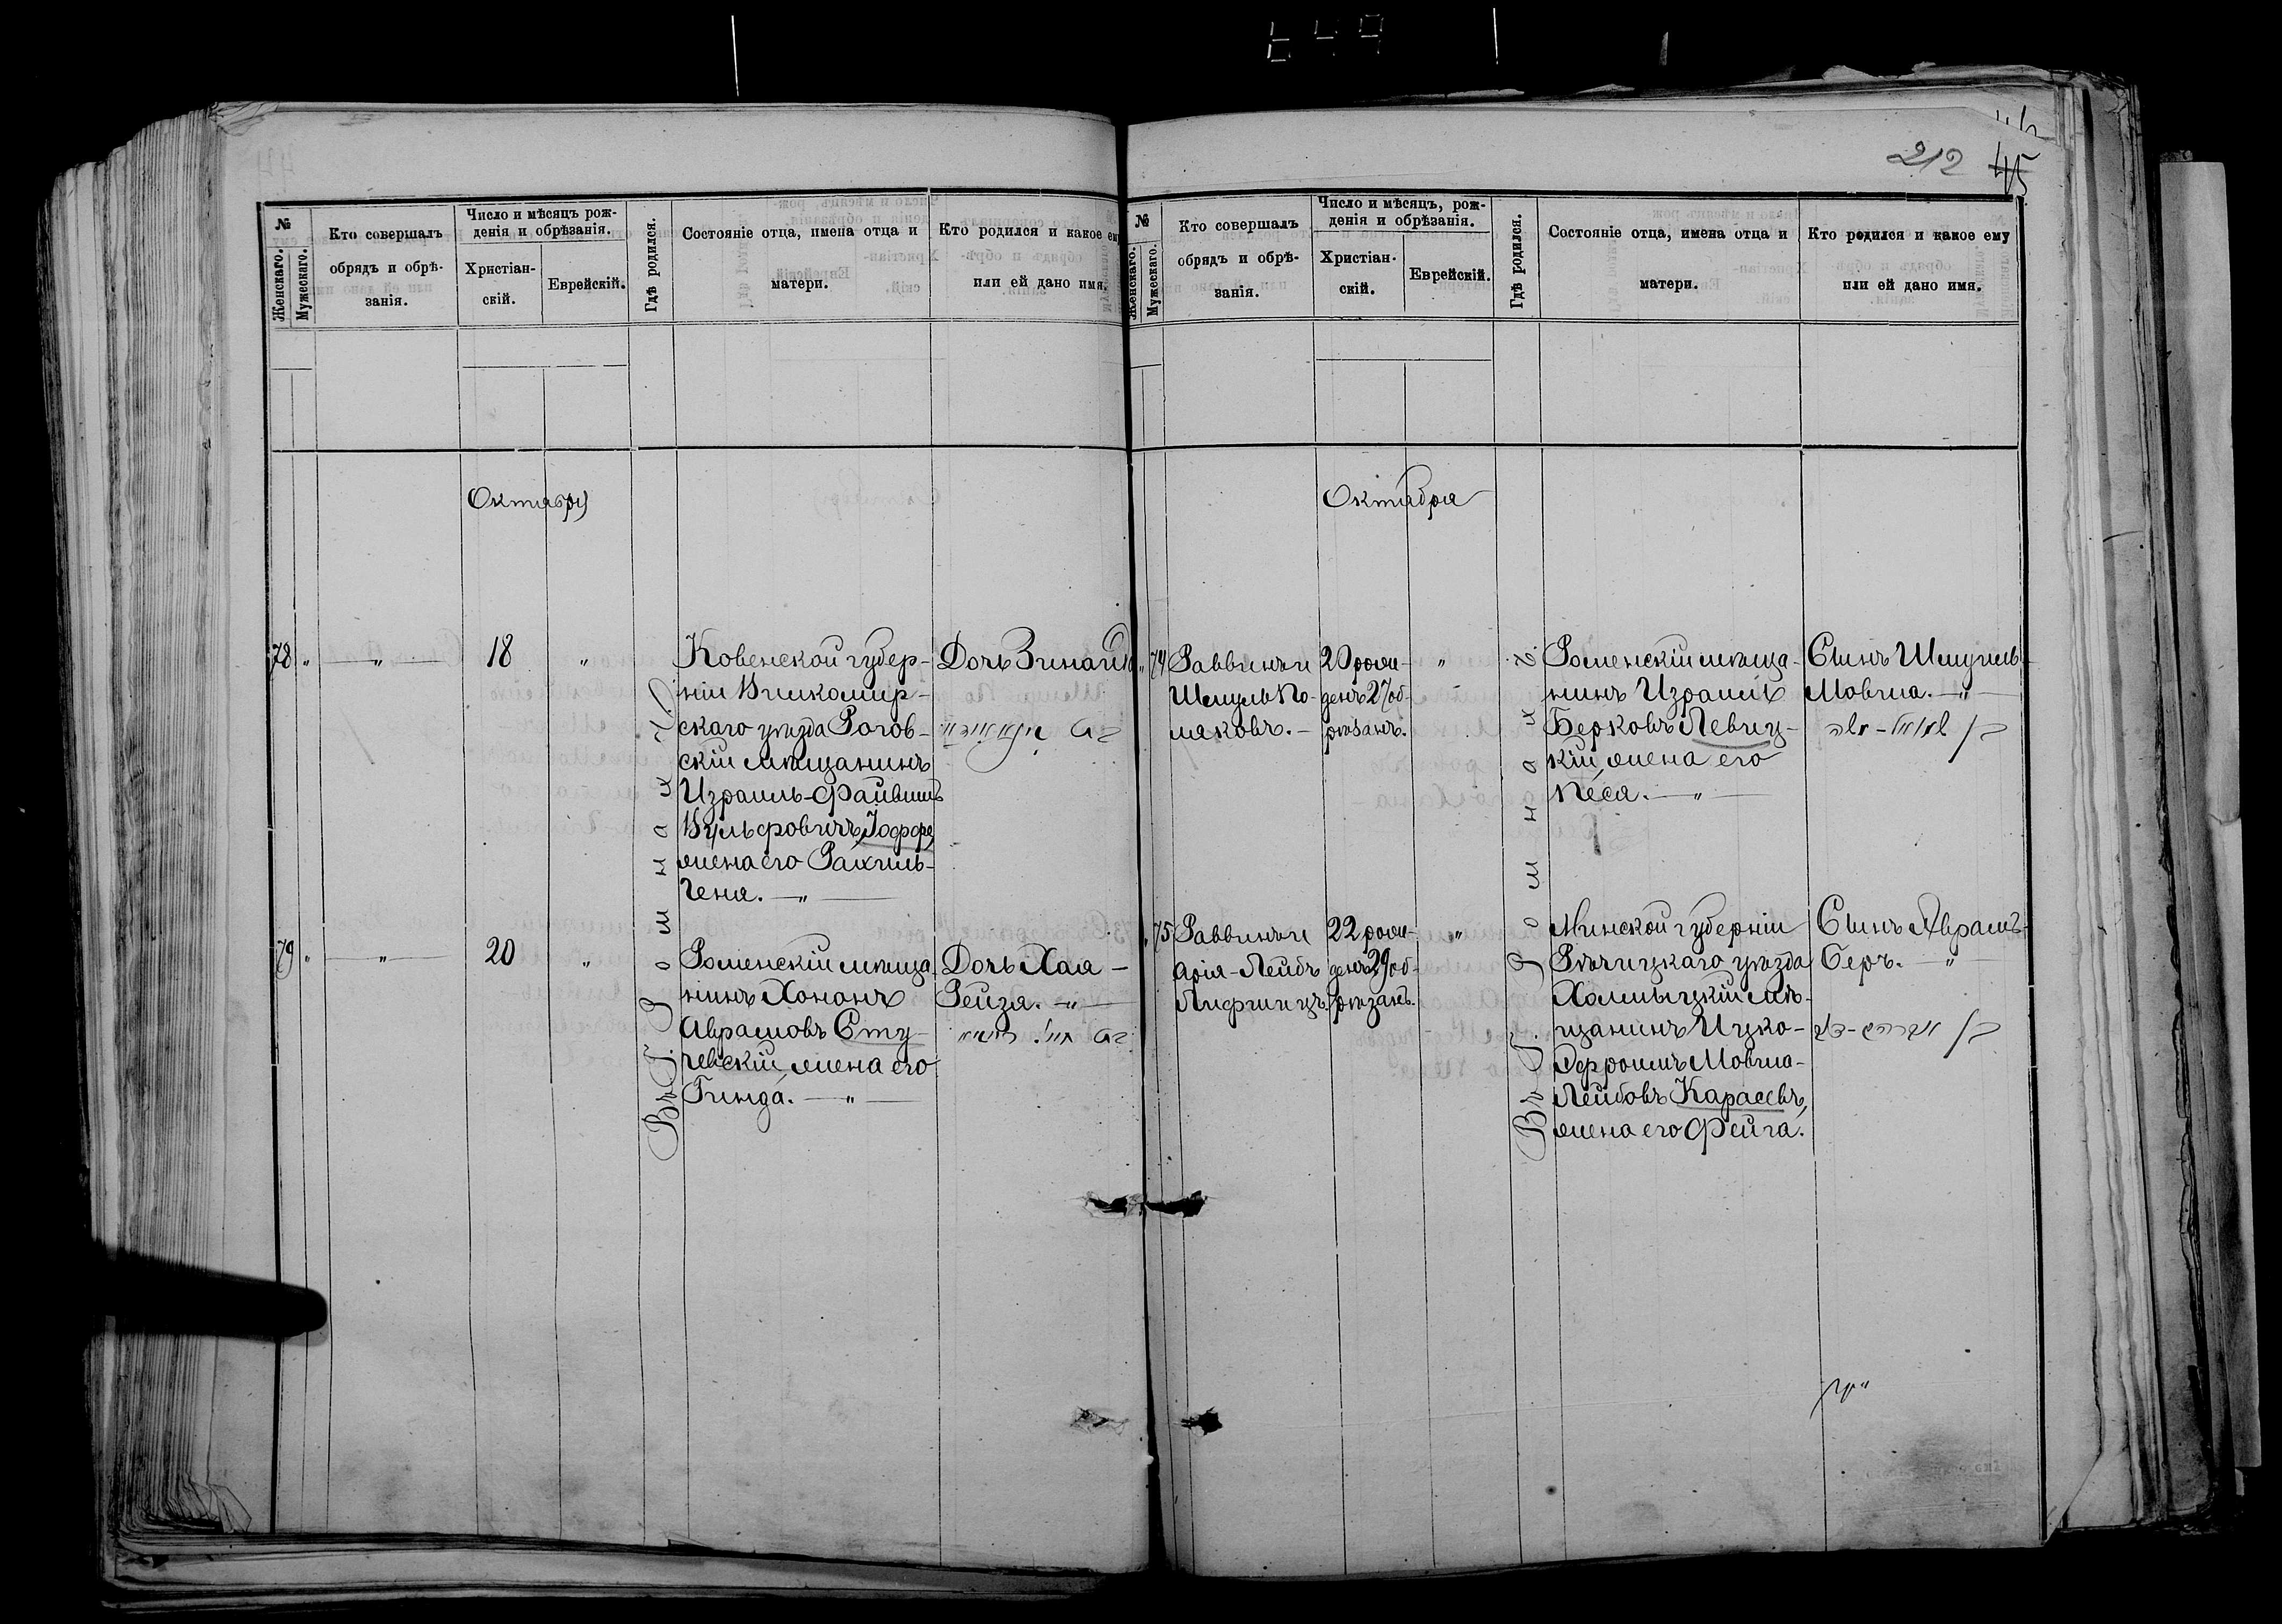 212 45
№
Женскаго.
Мужескаго.
Кто совершалъ
обрядъ и обрѣ-
занія.
Число и мѣсяцъ рож-
денія и обрѣзанія.
Христіан-
скій.
Еврейскій.
Гдѣ родился.
Состояніе отца, имена отца и
матери.
Кто родился и какое ему
или ей дано имя.
Октября
78 " — " — 18 "
Въ Г. Ромнахъ
Ковенской губер-
ніи Вилкомир-
скаго уѣзда Рогов-
скій мѣщанинъ
Израиль-Файвишъ
Вульфовичъ Іоффе,
жена его Рахиль-
Гена. — " —
Дочь Зинаида
79 " — " — 20 "
Роменскій мѣща-
нинъ Хононъ
Аврамовъ Сту-
чевскій, жена его
Гинда. — " —
Дочь Хая —
Рейза. — " —
№
Женскаго.
Мужескаго.
Кто совершалъ
обрядъ и обрѣ-
занія.
Число и мѣсяцъ, рож-
денія и обрѣзанія.
Христіан-
скій.
Еврейскій.
Гдѣ родился.
Состояніе отца, имена отца и
матери.
Кто родился и какое ему
или ей дано имя.
Октября
" 74
Раввинъ и
Шмуль По-
ляковъ. —
20 рож-
денъ 27 об-
рѣзанъ.
"
Въ Г. Ромнахъ.
Роменскій мѣща-
нинъ Израиль
Берковъ Левиц-
кій, жена его
Песя. — " —
Сынъ Шмуиль-
Мовша. — " —
בן שמואל - משה
" 75
Раввинъ и
Арія-Лейбъ
Лифшицъ.
22 рож-
денъ 29 об-
рѣзанъ.
"
Минской губерніи
Рѣчицкаго уѣзда
Холмычскій мѣ-
щанинъ Ицко-
Эфроимъ Мовша-
Лейбовъ Карасевъ,
жена его Фейга.
Сынъ Аврамъ-
Беръ. — " —
בן אברהם - בער